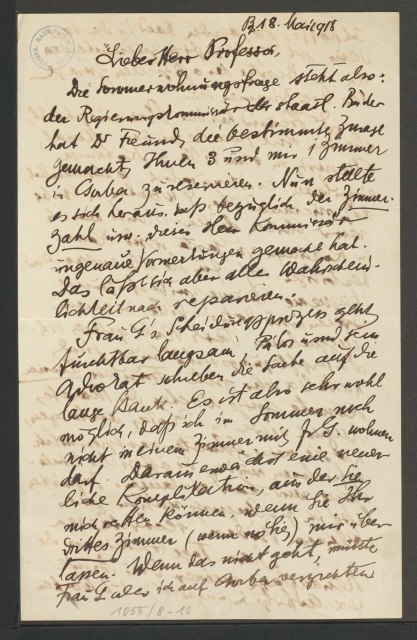 B. 18. Mai 1918
Lieber Herr Professor,
Die Sommerwohnungsfrage steht also:
der Regierungskommissär der staatl. Bäder
hat Dr Freund die bestimmte Zusage
gemacht, Ihnen 3 und mir 1 Zimmer
in Csorba zu reservieren. Nun stellte
es sich heraus, daß bezüglich der Zimmer-
zahl usw. dieser Herr Kommissär
ungenaue Vormerkungen gemacht hat.
Das läßt sich aber aller Wahrschein-
lichkeit nach reparieren.
Frau G.'s Scheidungsprozess geht
furchtbar langsam; Pálos und sein
Advokat schieben die Sache auf die
lange Bank. Es ist also sehr wohl
möglich, daß ich im Sommer noch
nicht in einem Zimmer mit Fr G. wohnen
darf. Daraus erwächst eine neuer-
liche Komplikation, aus der Sie
mich retten können, wenn Sie Ihr
drittes Zimmer (wenn nötig) mir über-
lassen. Wenn das nicht geht, müßte
Frau G. oder ich auf Csorba verzichten
1055/8-10